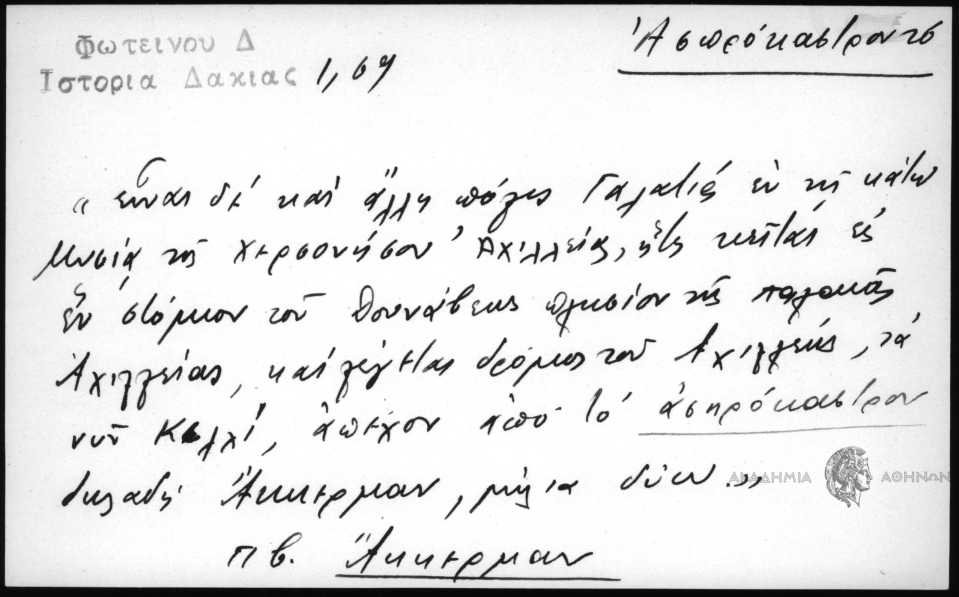 Φωτεινου Δ
Ιστορια Δακιας 1, 69
Ἀσπρόκαστρον τό
„ εἶναι δέ καί ἄλλη πόλις Γαλατίς ἐν τῇ κάτω
Μυσίᾳ τῆς χερσονήσου Ἀχιλλείας, ἥτις κεῖται εἰς
ἕν στόμιον τοῦ Δουνάβεως πλησίον τῆς παλαιᾶς
Ἀχιλλείας, καί λέγεται δρόμος τοῦ Ἀχιλλέως, τά
νῦν Κελλί, ἀπέχον ἀπό τό ἀσπρόκαστρον
δηλαδή Ἄκκερμαν, μίλια δύω..„
Πβ. Ἄκκερμαν
ΑΚΑΔΗΜΙΑ ΑΘΗΝΩΝ